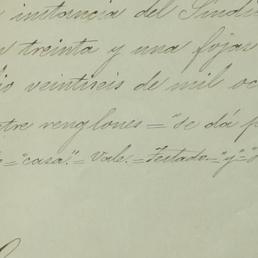 instancia del Síndi
treinta y una fojas
veintiseis de mil oc
tre renglones = "se dá p
= "casa". = Vale. = Testado = "y" =